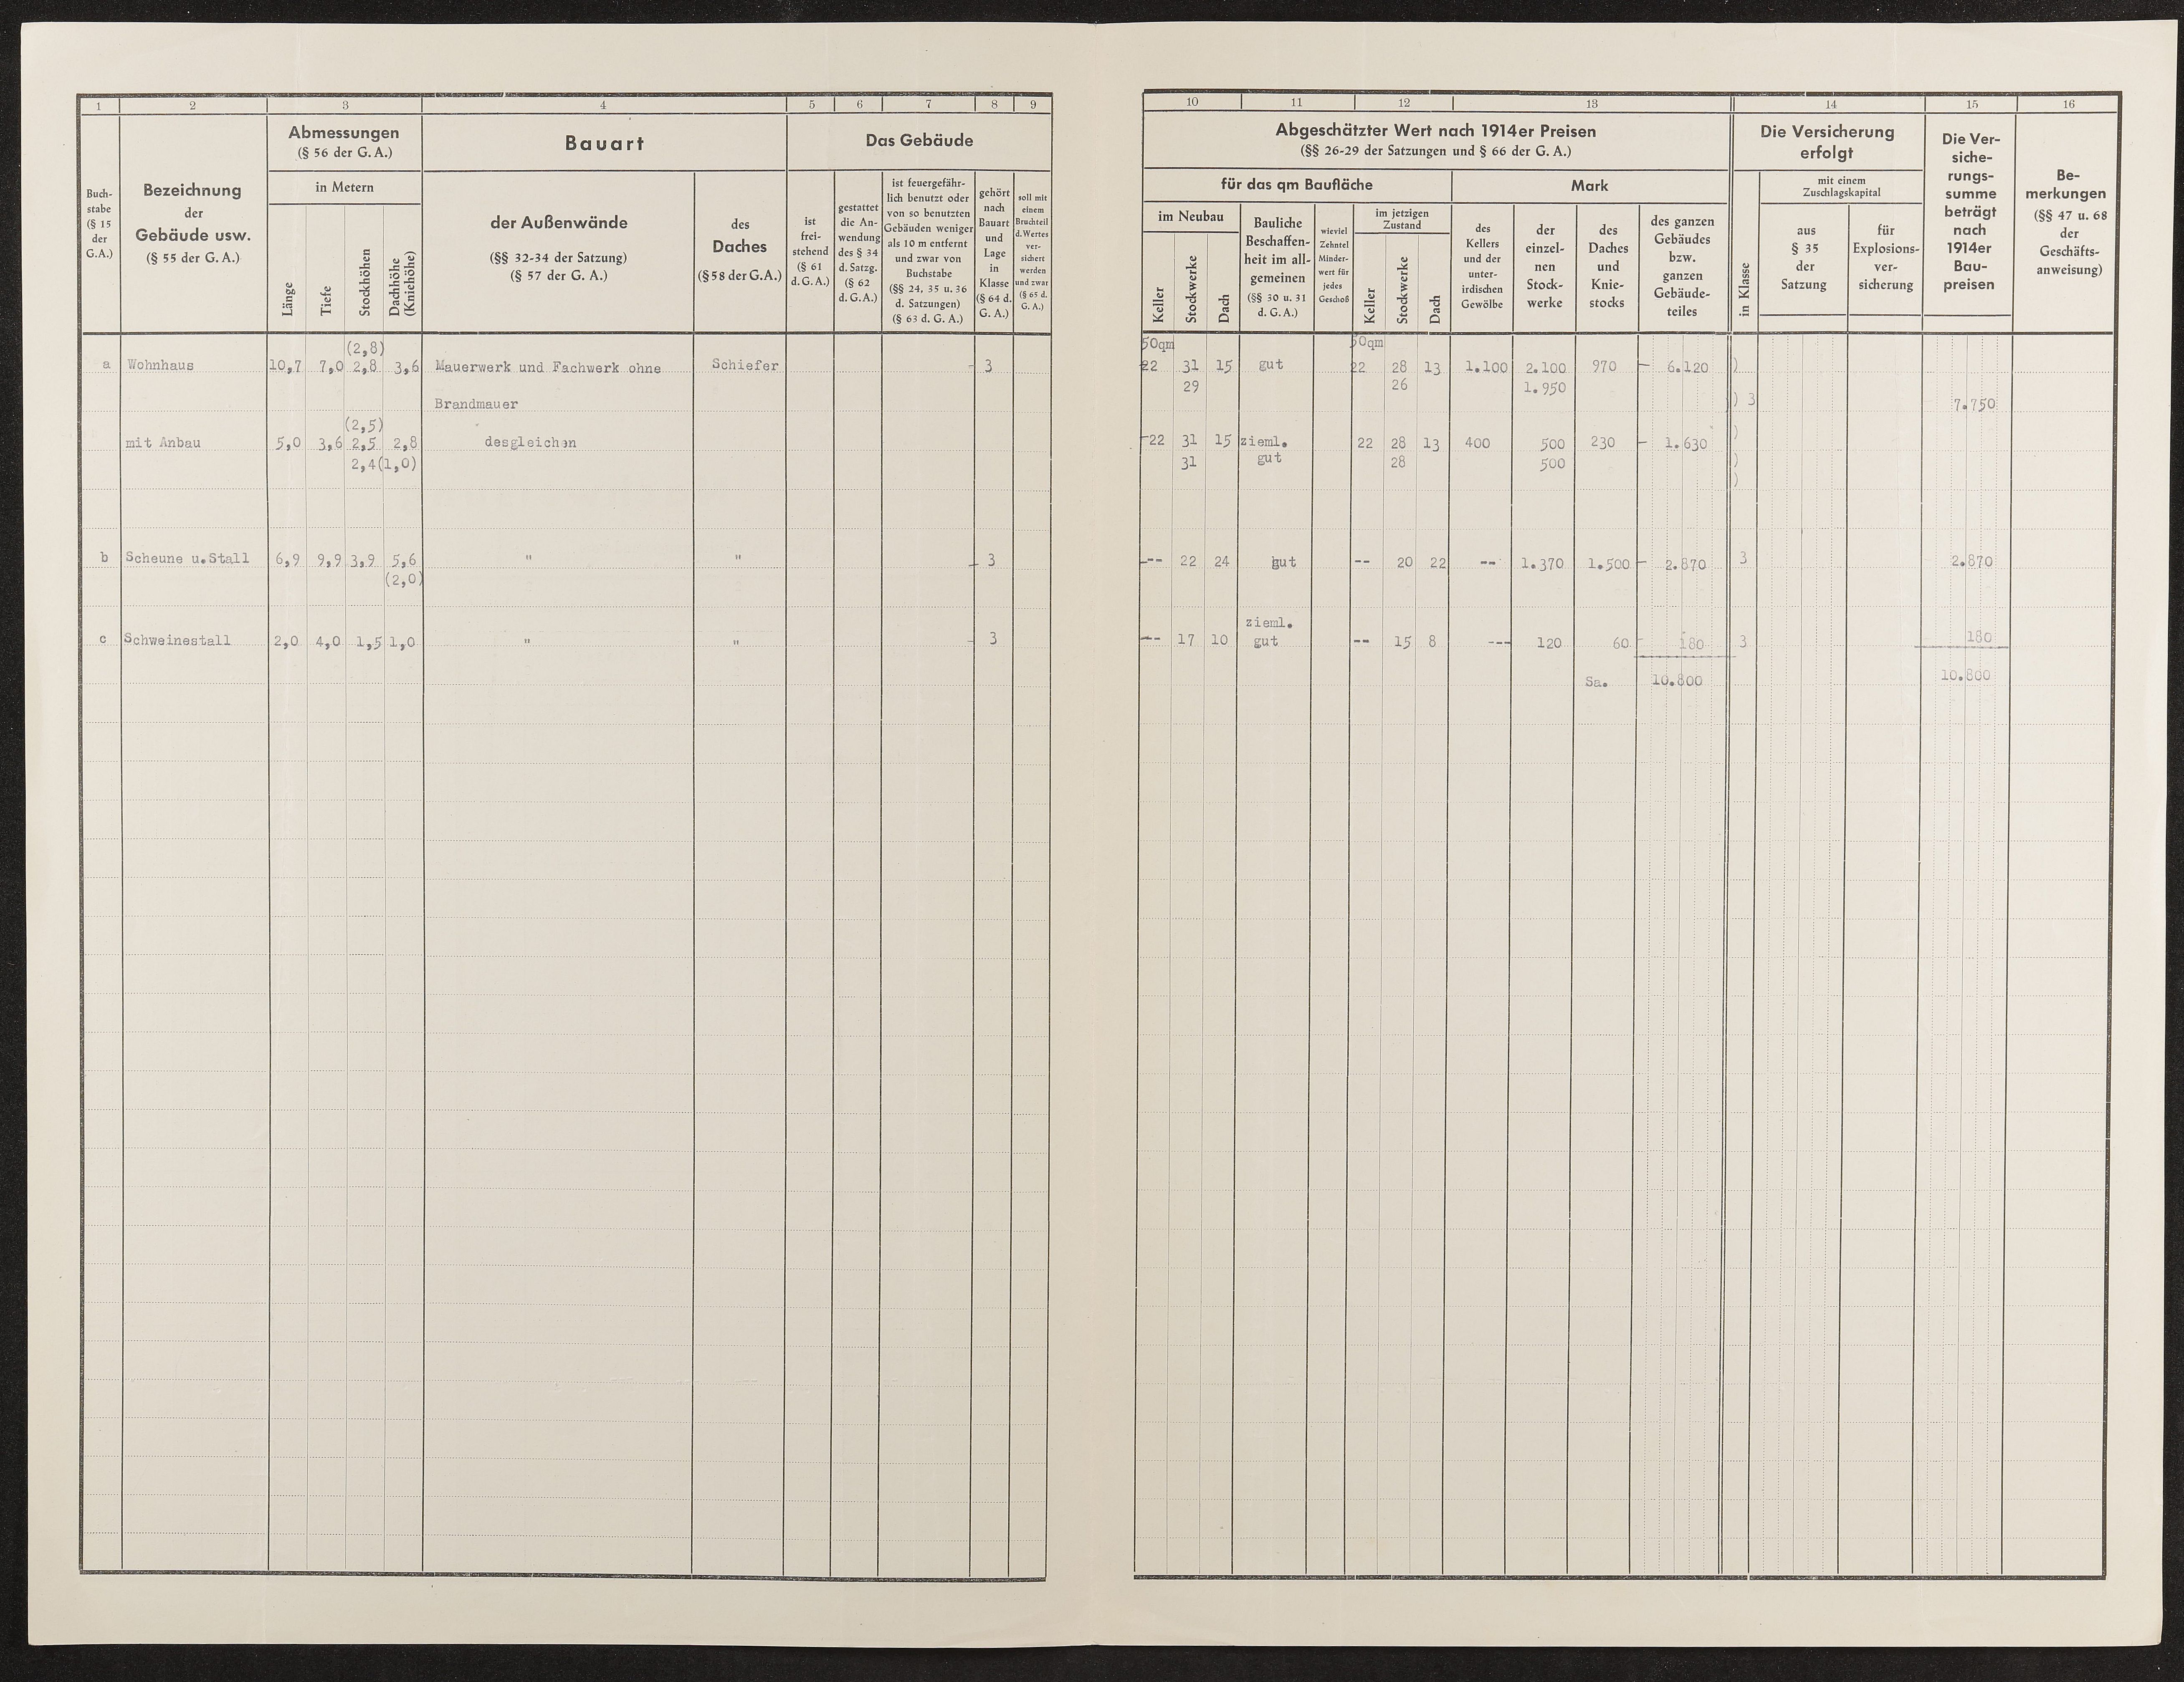 1 2 3 4 5 6 7 8 9
Buch-
stabe
(§ 15
der
G.A.)
Bezeichnung
der
Gebäude usw.
(§ 55 der G. A.)
Abmessungen
(§ 56 der G. A.)
in Metern
Länge
Tiefe
Stockhöhen
Dachhöhe
(Kniehöhe)
Bauart
der Außenwände
(§§ 32-34 der Satzung)
(§ 57 der G. A.)
des
Daches
(§ 58 der G. A.)
Das Gebäude
ist
frei-
stehend
(§ 61
d. G. A.)
gestattet
die An-
wendung
des § 34
d. Satzg.
(§ 62
d. G. A.)
ist feuergefähr-
lich benutzt oder
von so benutzten
Gebäuden weniger
als 10 m entfernt
und zwar von
Buchstabe
(§§ 24, 35 u. 36
d. Satzungen)
(§ 63 d. G. A.)
gehört
nach
Bauart
und
Lage
in
Klasse
(§ 64 d.
G. A.)
soll mit
einem
Bruchteil
d. Wertes
ver-
sichert
werden
und zwar
(§ 65 d.
G. A.)
(2,8)
a Wohnhaus 10,7 7,0 2,8 3,6 Mauerwerk und Fachwerk ohne Schiefer - 3
Brandmauer
(2,5)
mit Anbau 5,0 3,6 2,5 2,8 desgleichen
2,4 (1,0)
b Scheune u.Stall 6,9 9,9 3,9 5,6 " " - 3
(2,0)
c Schweinestall 2,0 4,0 1,5 1,0 " " - 3
10 11 12 13 14 15 16
Abgeschätzter Wert nach 1914er Preisen
(§§ 26-29 der Satzungen und § 66 der G. A.)
für das qm Baufläche
im Neubau
Keller
Stockwerke
Dach
Bauliche
Beschaffen-
heit im all-
gemeinen
(§§ 30 u. 31
d. G. A.)
wieviel
Zehntel
Minder-
wert für
jedes
Geschoß
im jetzigen
Zustand
Keller
Stockwerke
Dach
Mark
des
Kellers
und der
unter-
irdischen
Gewölbe
der
einzel-
nen
Stock-
werke
des
Daches
und
Knie-
stocks
des ganzen
Gebäudes
bzw.
ganzen
Gebäude-
teiles
Die Versicherung
erfolgt
in Klasse
mit einem
Zuschlagskapital
aus
§ 35
der
Satzung
für
Explosions-
ver-
sicherung
Die Ver-
siche-
rungs-
summe
beträgt
nach
1914er
Bau-
preisen
Be-
merkungen
(§§ 47 u. 68
der
Geschäfts-
anweisung)
50qm 50qm
22 31 15 gut 22 28 13 1.100 2.100 970 - 6.120 )
29 26 1.950
) 3 7.750
22 31 15 zieml. 22 28 13 400 500 230 - 1.630 )
31 gut 28 500 )
)
-- 22 24 gut -- 20 22 -- 1.370 1.500 - 2.870 3 2.870
zieml.
-- 17 10 gut -- 15 8 --- 120 60 - 180 3 180
Sa. 10.800 10.800